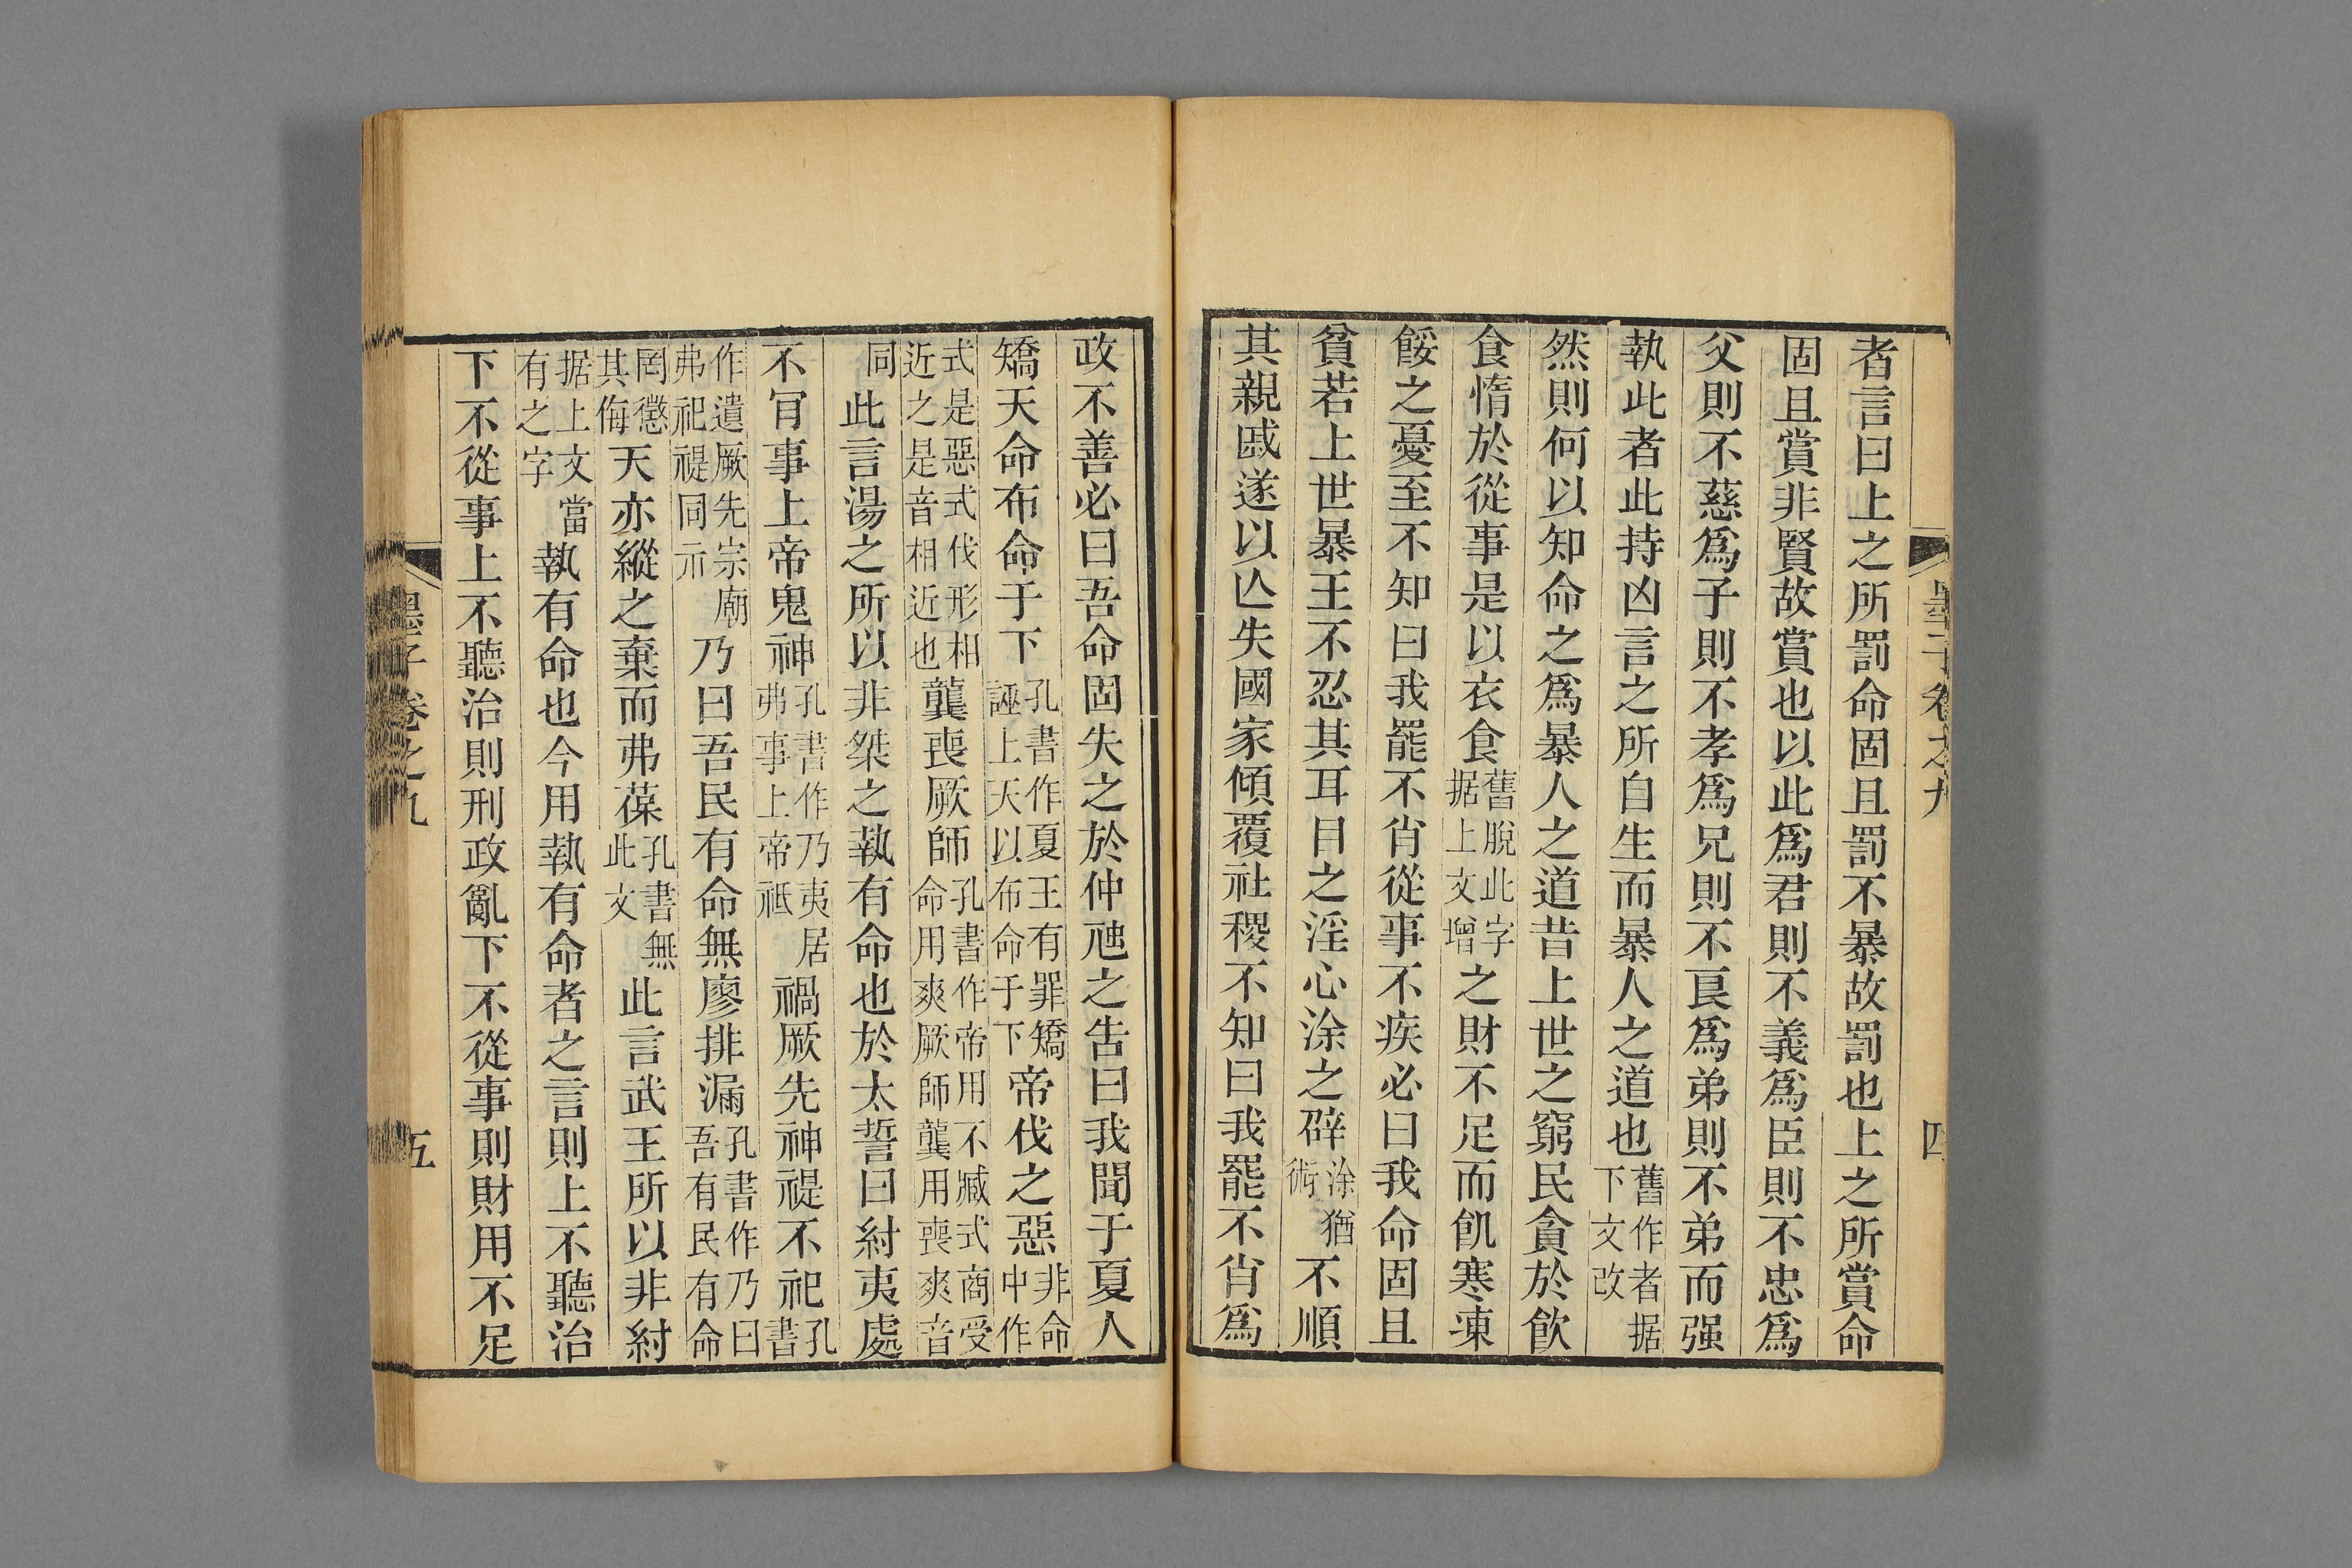 者言曰上之所罰命固且罰不暴故罰也上之所賞命
固且賞非賢故賞也以此爲君則不義爲臣則不忠爲
父則不慈爲子則不孝爲兄則不良爲弟則不弟而强
執此者此持凶言之所自生而暴人之道也舊作者据下文改
然則何以知命之爲暴人之道昔上世之窮民貪於飲
食惰於從事是以衣食舊脫此字据上文增之財不足而飢寒凍
餒之憂至不知曰我罷不肖從事不疾必曰我命固且
貧若上世暴王不忍其耳目之淫心涂之辟涂猶術不順
其親戚遂以亾失國家傾覆社稷不知曰我罷不肖爲
墨子卷之九
四
政不善必曰吾命固失之於仲虺之告曰我聞于夏人
矯天命布命于下孔書作夏王有罪矯誣上天以布命于下帝伐之惡非命中作
式是惡式伐形相近之是音相近也龔喪厥師孔書作帝用不臧式商受命用爽厥師龔用喪爽音
同此言湯之所以非桀之執有命也於太誓曰紂夷處
不肎事上帝鬼神孔書作乃夷居弗事上帝祇禍厥先神禔不祀孔書
作遺厥先宗廟弗祀禔同示乃曰吾民有命無廖排漏孔書作乃曰吾有民有命
罔懲其侮天亦縱之棄而弗葆孔書無此文此言武王所以非紂
据上文當有之字執有命也今用執有命者之言則上不聽治
下不從事上不聽治則刑政亂下不從事則財用不足
墨子卷之九
五